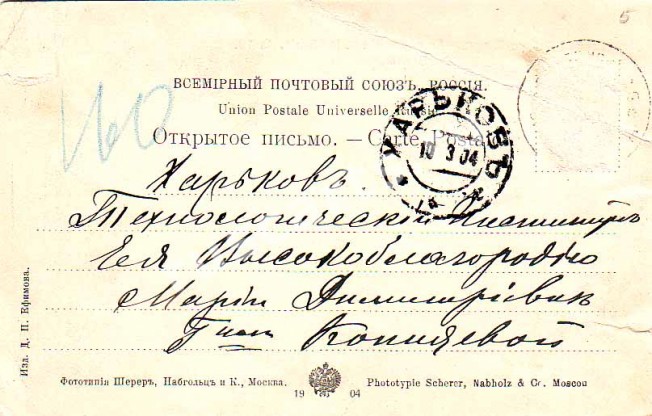 5
ВСЕМІРНЫЙ ПОЧТОВЫЙ СОЮЗЪ. РОССІЯ.
Union Postale Universelle Russie
Открытое письмо. — Carte Postale
ХАРЬКОВЪ
10 3 04
Харьковъ.
Технологическій Институтъ
Ея Высокоблагородію
Маріи Димитріевнѣ
Гжѣ
Изд. Д. П. Ефимова.
Фототипія Шереръ, Набгольцъ и К., Москва.
Phototypie Scherer, Nabholz & Co. Moscou
19 04